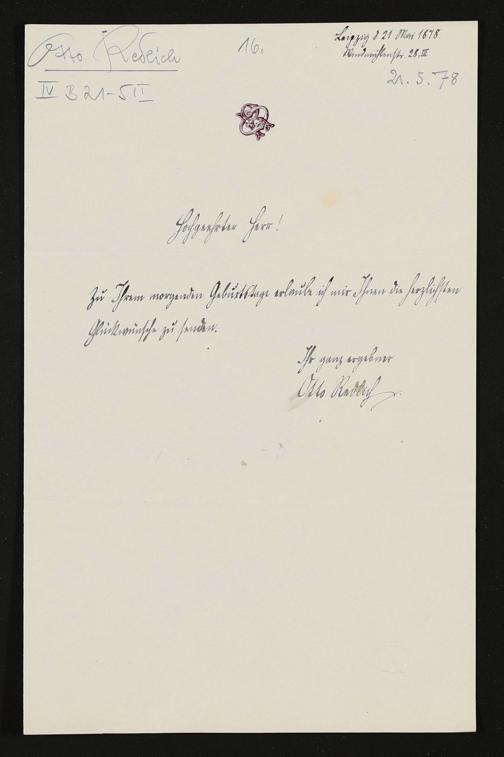 Otto Redlich
16.
Leipzig d 21 Mai 1878.
Windmühlenstr 28.III
21. 5. 78
IV B 21-5II
Hochgeehrter Herr!
Zu Ihrem morgenden Geburtstage erlaube ich mir Ihnen die herzlichsten
Glückwünsche zu senden.
Ihr ganz ergebner
Otto Redlich